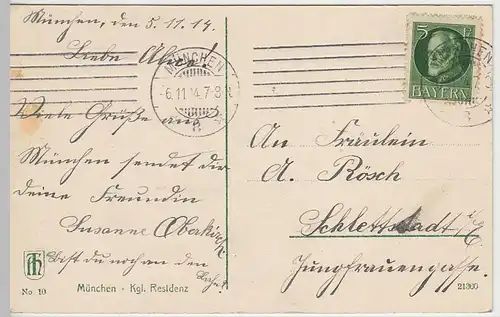 München, den 5.11.14.
Liebe Alice!
Viele Grüße aus
München sendet dir
deine Freundin
Susanne Oberkirch
Bist du noch an den
No. 10
München - Kgl. Residenz
MÜNCHEN
6.11.14.7-8
8
5 PF
BAYERN
An Fräulein
A. Rösch
Schlettstadt i/E
Jungfrauengasse.
21360